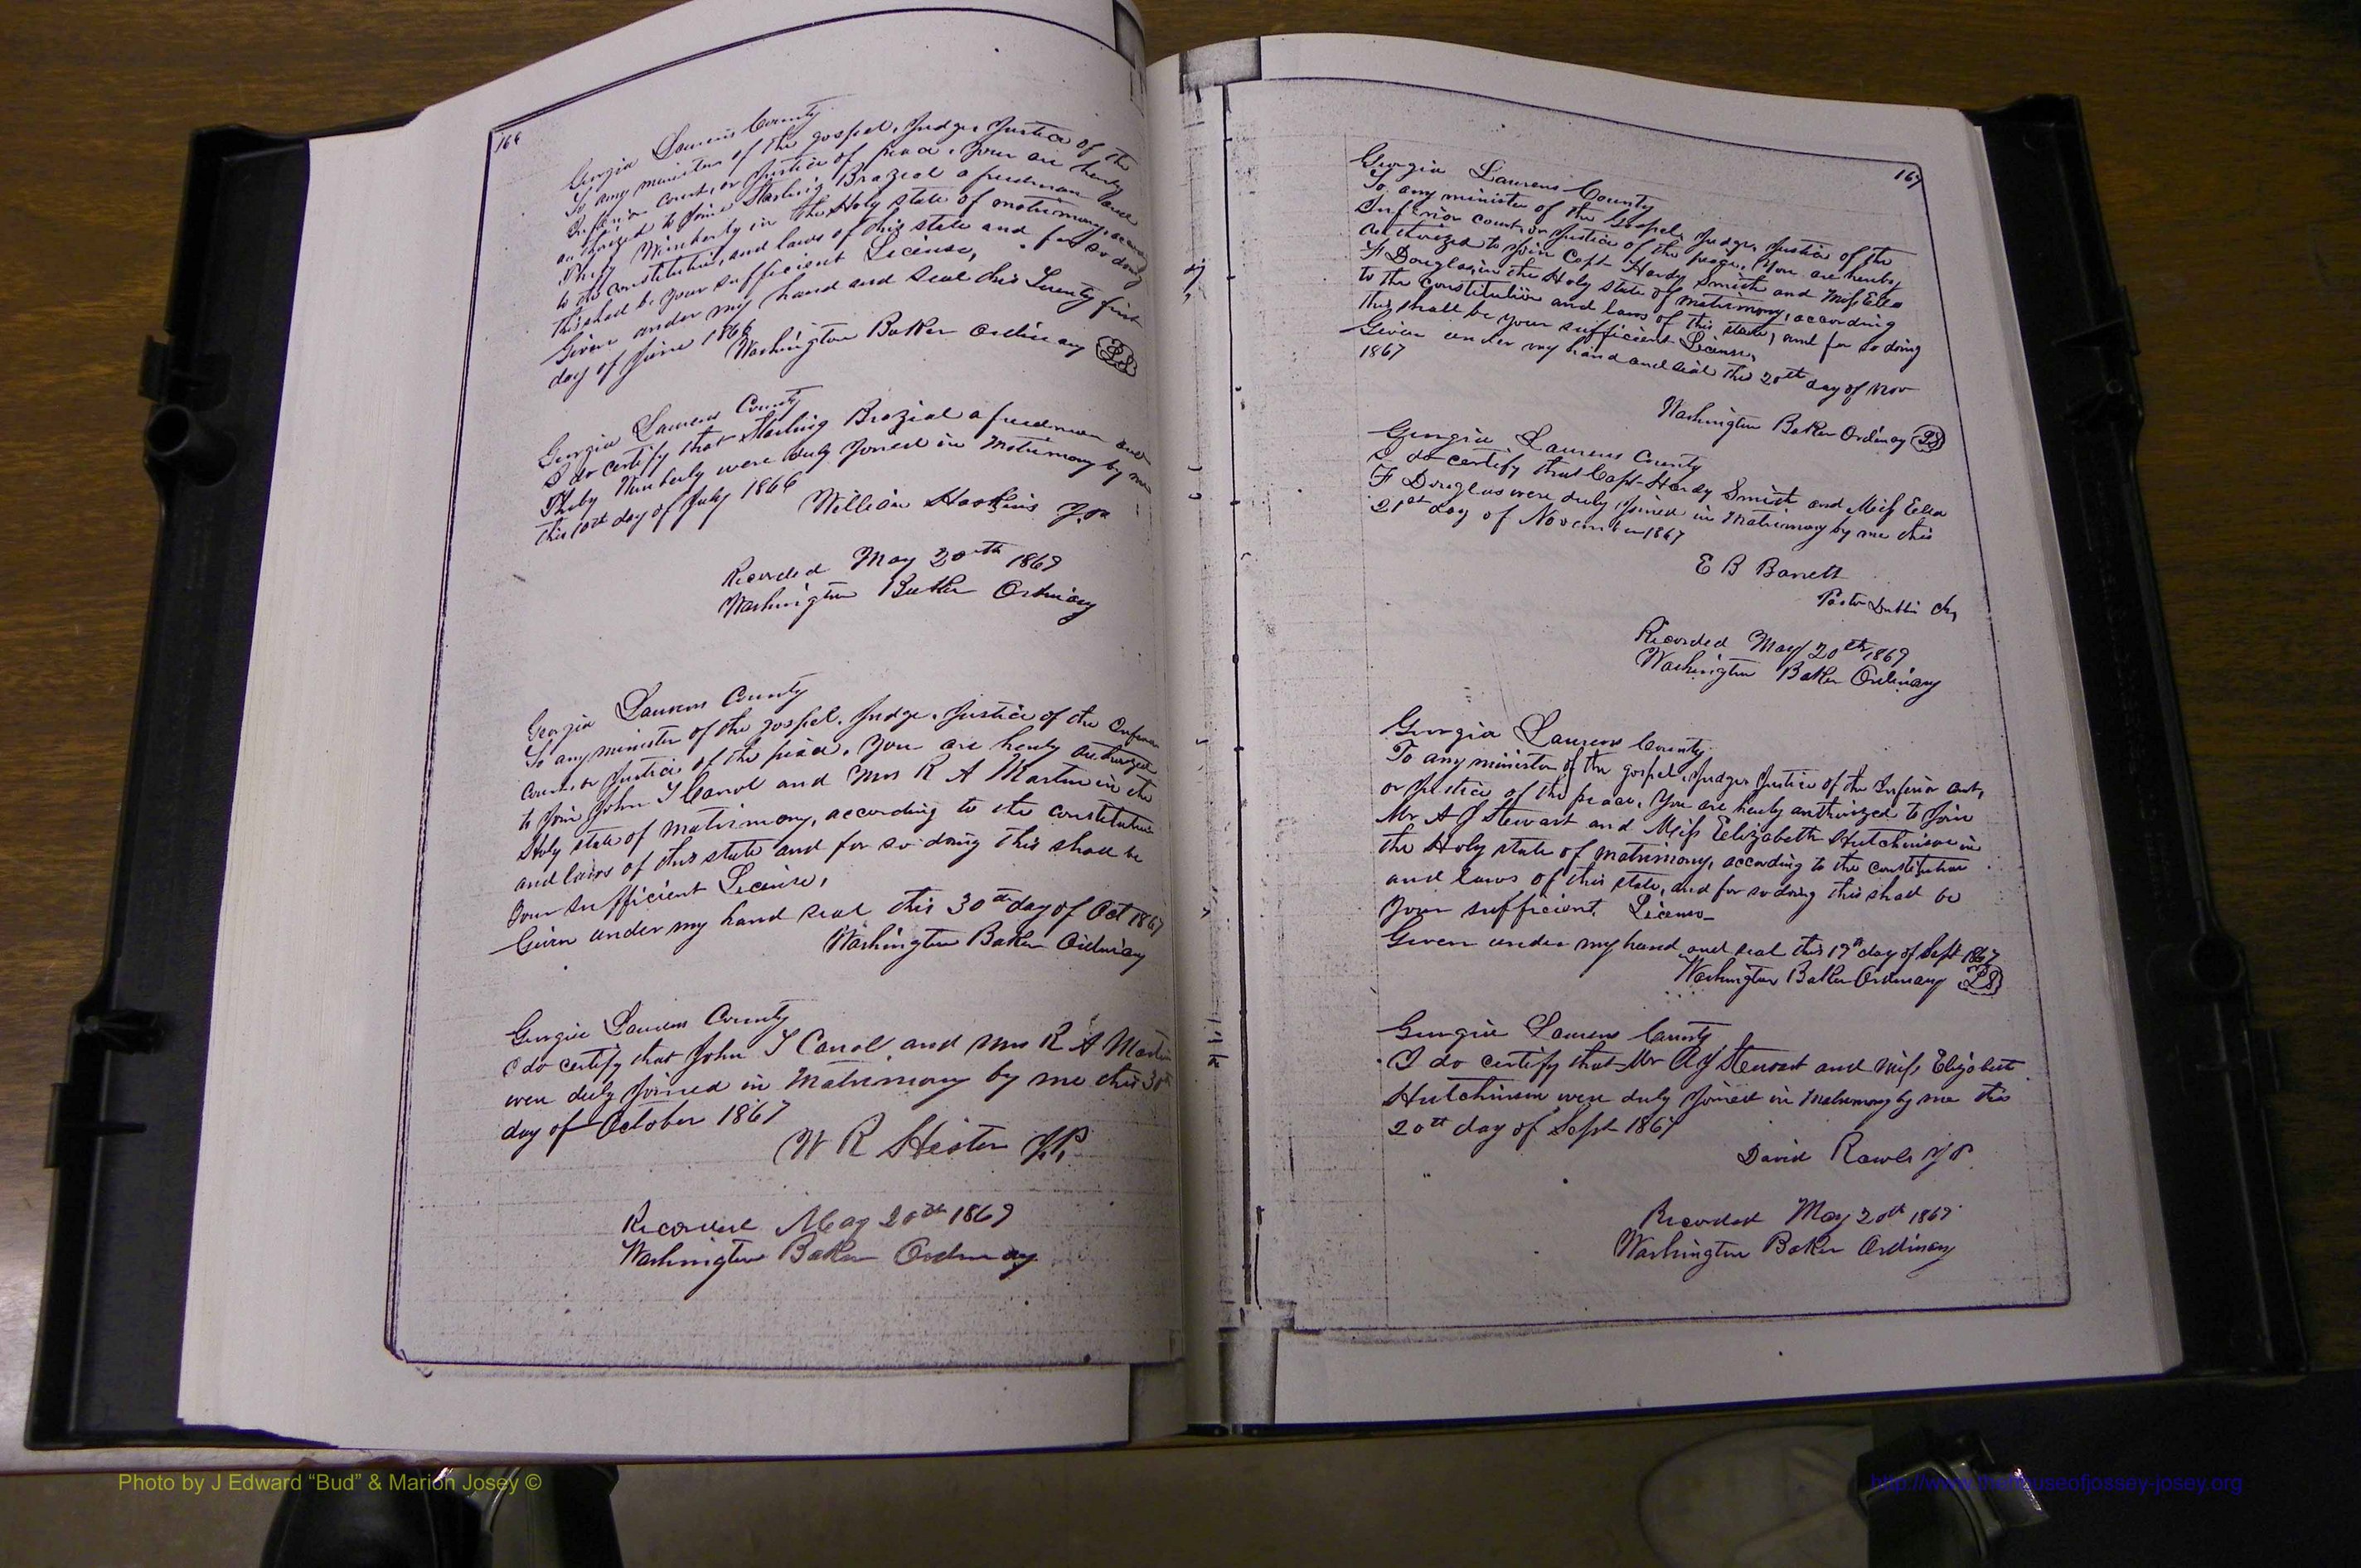 166
Georgia Laurens County
To any minister of the gospel, Judge, Justice of the
Inferior court, or Justice of peace. You are hereby
authorized to Join Starling Brazial a freedman and
Wimberly in the Holy state of matrimony,
to the constitution, and laws of this state and for so doing
this shall be your sufficient License,
Given under my hand and Seal this Twenty first
day of June 1866
Washington Baker Ordinary LS
Georgia Laurens County
I do certify that Starling Brazial a freedman and
Wimberly were duly Joined in Matrimony by me
this day of July 1866
William Haskins J.P.
Recorded May 20th 1869
Washington Baker Ordinary
Georgia Laurens County
To any minister of the gospel, Judge, Justice of the Inferior
court, or Justice of the peace. You are hereby authorized
to Join John T Carrol and Mrs R A Martin in the
Holy state of matrimony, according to the constitution
and laws of this state and for so doing this shall be
Your sufficient License,
Given under my hand seal this 30th day of Oct 1867
Washington Baker Ordinary
Georgia Laurens County
I do certify that John T Carrol and Mrs R A Martin
were duly Joined in Matrimony by me this 30th
day of October 1867
W R Hester J.P.
Recorded May 20th 1869
Washington Baker Ordinary
167
Georgia Laurens County
To any minister of the Gospel, Judge, Justice of the
Inferior court, or Justice of the peace, You are hereby
authorized to Join Capt Hardy Smith and Miss Ella
F Douglas, in the Holy state of matrimony, according
to the constitution and laws of this state, and for so doing
this shall be your sufficient License,
Given under my hand and seal this 20th day of Nov
1867
Washington Baker Ordinary LS
Georgia Laurens County
I do certify that Capt Hardy Smith and Miss Ella
F Douglas were duly Joined in Matrimony by me this
21st day of November 1867
E B Barrett
Pastor Dublin Ch,
Recorded May 20th 1869
Washington Baker Ordinary
Georgia Laurens County
To any minister of the gospel, Judge, Justice of the Inferior Court,
or Justice of the peace, You are hereby authorized to Join
Mr A J Stewart and Miss Elizabeth Hutchinson in
the Holy state of matrimony, according to the constitution
and laws of this state, and for so doing this shall be
Your sufficient License
Given under my hand and seal this 19th day of Sept 1867
Washington Baker Ordinary LS
Georgia Laurens County
I do certify that Mr A J Stewart and Miss Elizabeth
Hutchinson were duly Joined in Matrimony by me this
20th day of Sept 1867
David Rawls J P
Recorded May 20th 1869
Washington Baker Ordinary
Photo by J Edward “Bud” & Marion Josey ©
http://www.thehouseofjossey-josey.org